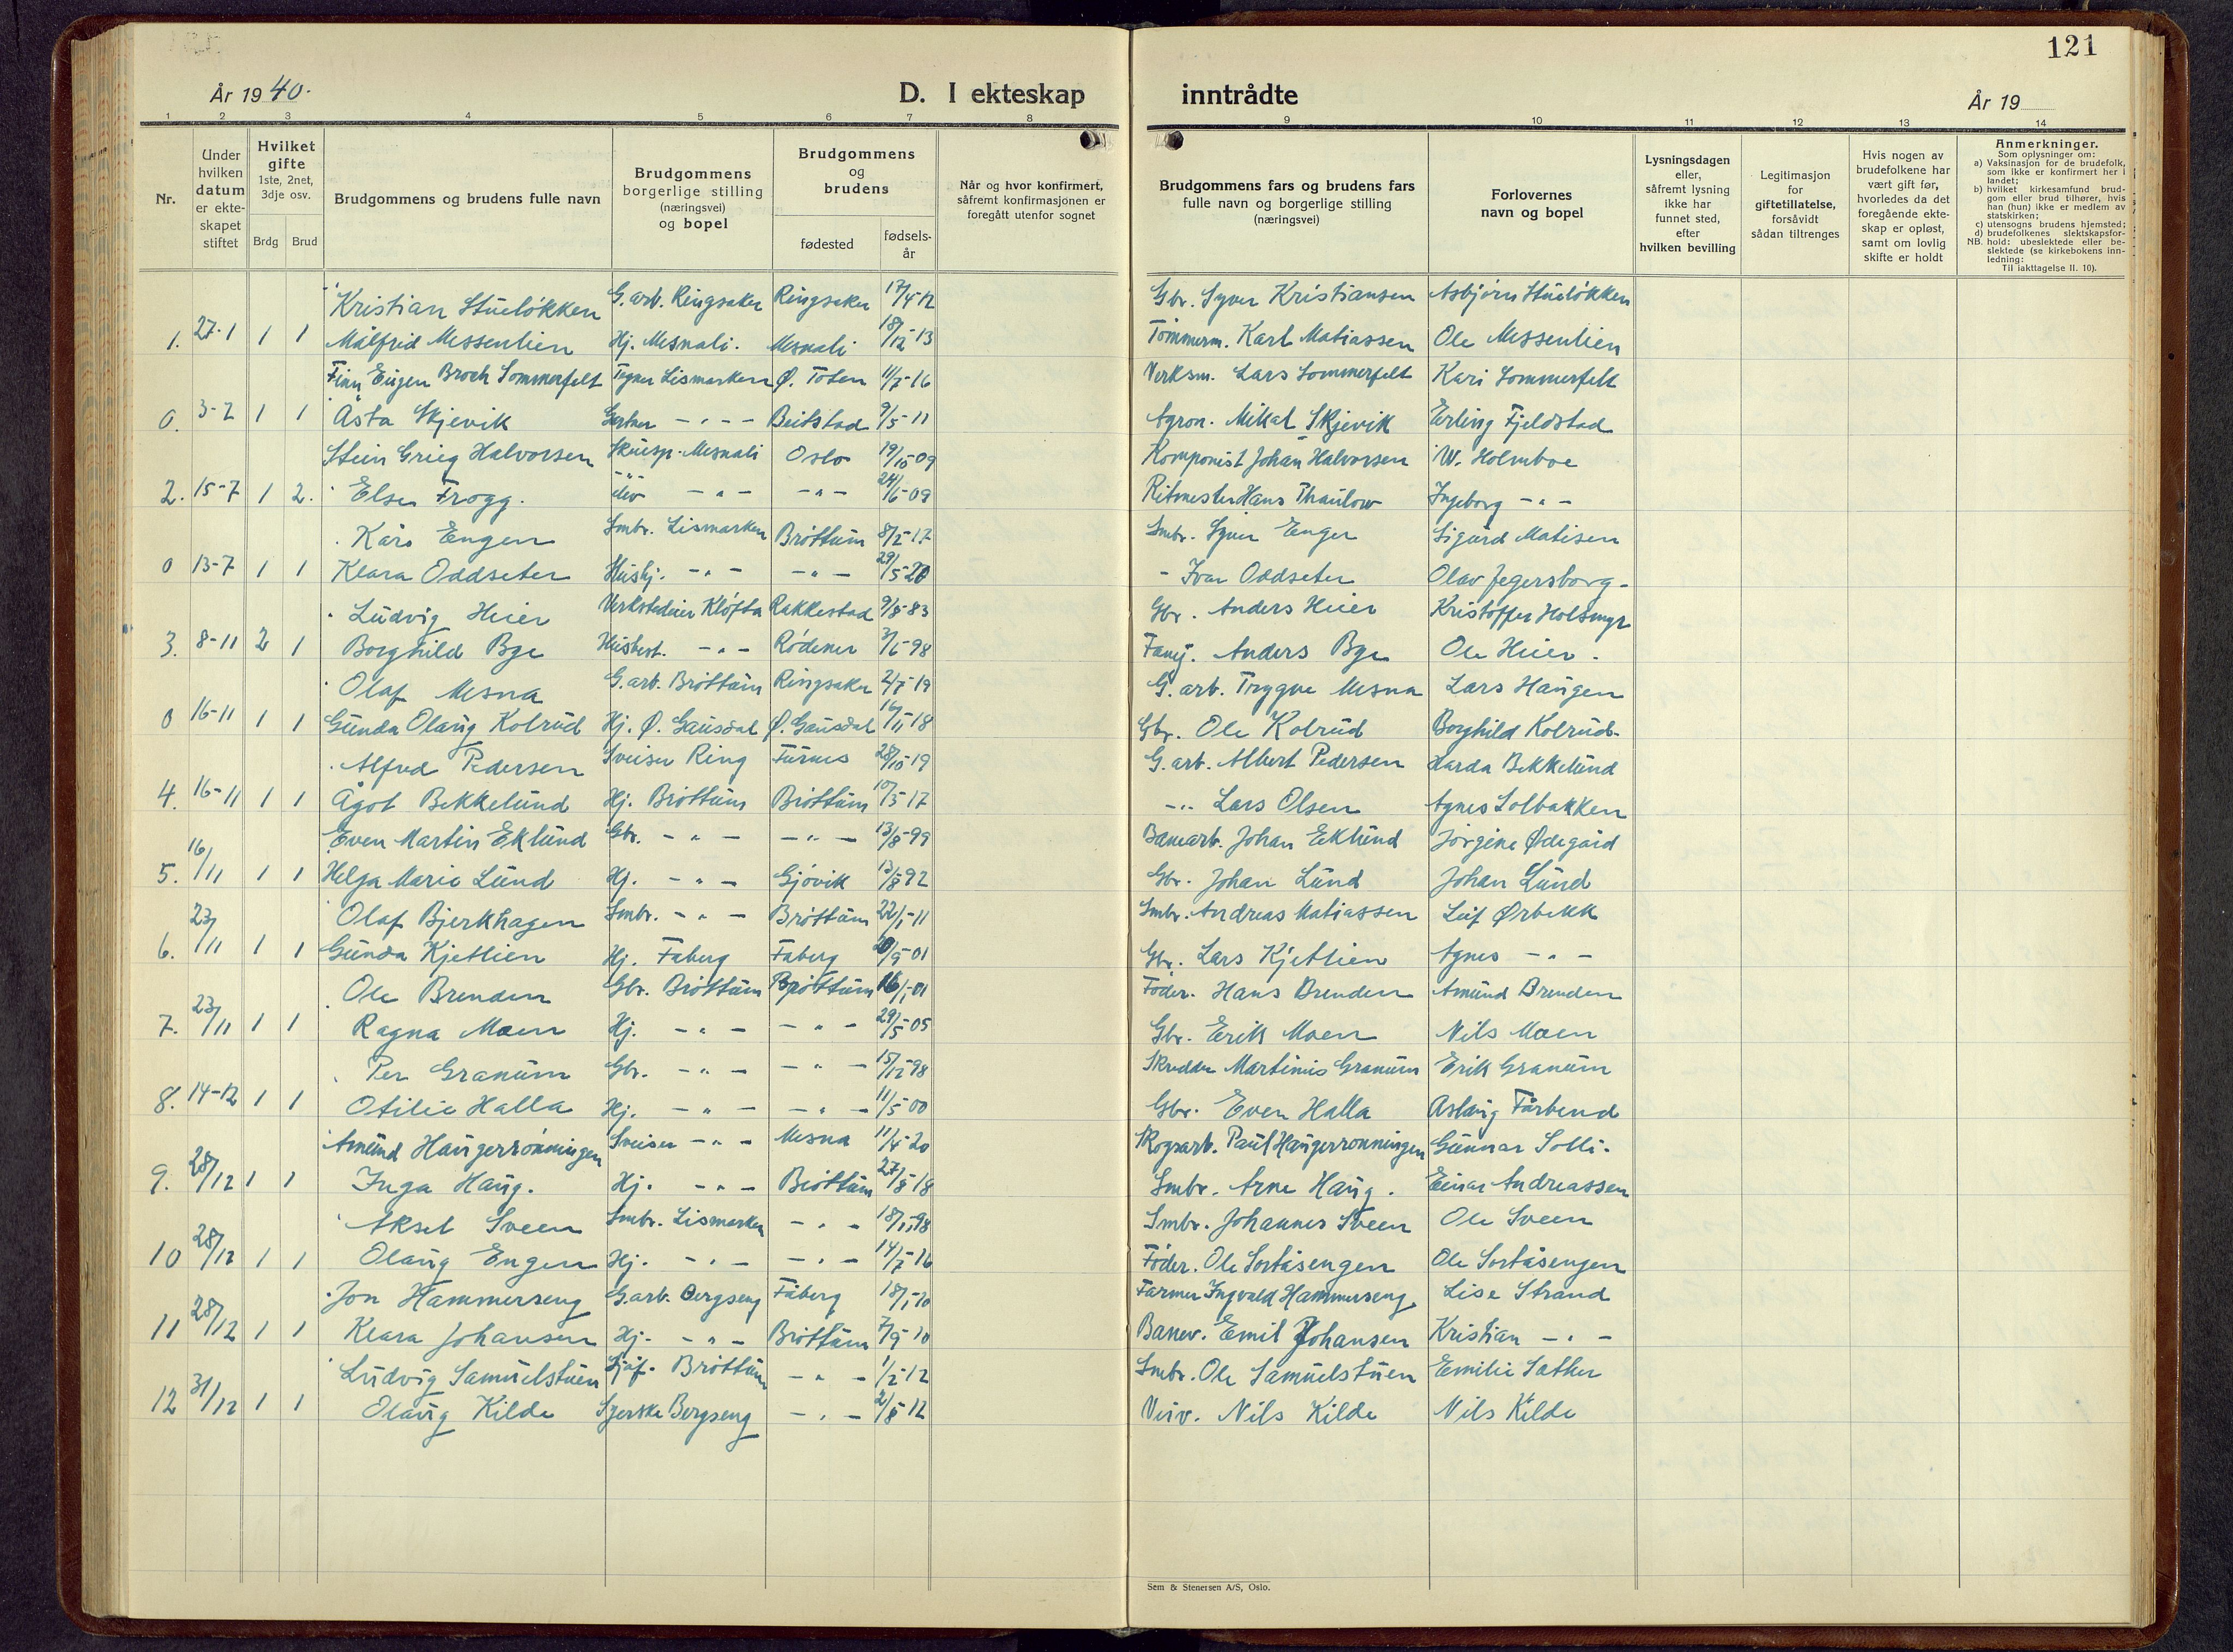 121
År 1940.
D. I ekteskap inntrådte
År 19
1 2 3 4 5 6 7 8 9 10 11 12 13 14
Nr.
Under hvilken datum er ekteskapet stiftet
Hvilket gifte 1ste, 2net, 3dje osv.
Brdg Brud
Brudgommens og brudens fulle navn
Brudgommens borgerlige stilling (næringsvei) og bopel
Brudgommens og brudens
fødested
fødselsår
Når og hvor konfirmert, såfremt konfirmasjonen er foregått utenfor sognet
Brudgommens fars og brudens fars fulle navn og borgerlige stilling (næringsvei)
Forlovernes navn og bopel
Lysningsdagen eller, såfremt lysning ikke har funnet sted, efter hvilken bevilling
Legitimasjon for giftetillatelse, forsåvidt sådan tiltrenges
Hvis nogen av brudefolkene har vært gift før, hvorledes da det foregående ekteskap er opløst, samt om lovlig skifte er holdt
Anmerkninger.
Som oplysninger om:
a) Vaksinasjon for de brudefolk, som ikke er konfirmert her i landet;
b) hvilket kirkesamfund brudgom eller brud tilhører, hvis han (hun) ikke er medlem av statskirken;
c) utensogns brudens hjemsted;
d) brudefolkenes slektskapsforhold: ubeslektede eller beslektede (se kirkebokens innledning:
NB. Til iakttagelse II. 10).
Kristian Stueløkken G. arb. Ringsaker Ringsaker 17/4-12 Gbr. Syver Kristiansen Asbjørn Stueløkken
1. 27-1 1 1 Målfrid Messenlien Hj. Mesnali. Mesnali 18/12-13 Tømmerm. Karl Matiassen Ole Messenlien
Finn Eugen Broch Sommerfelt Tegner Lismarken Ø. Toten 11/7-16 Verksm. Lars Sommerfelt Kari Sommerfelt
0. 3-2 1 1 Åsta Skjevik Gartner - " - Beitstad 9/5-11 Agron. Mikal Skjevik Erling Fjeldstad
Stein Grieg Halvorsen Skuesp. Mesnali Oslo 19/10-09 Komponist Johan Halvorsen W. Holmboe
2. 15-7 1 2. Else Frogg. - " - - " - 24/6-09 Ritmester Hans Thaulow Ingeborg - " -
Kåre Engen Smbr. Lismarken Brøttum 8/2-17 Smbr. Syver Engen Sigurd Matisen
0 13-7 1 1 Klara Oddseter Hushj. - " - - " - 29/5-20 - Ivar Oddseter Olav Jegersborg -
Ludvig Heier Verkstedeier Kløfta Rakkestad 9/8-83 Gbr. Anders Heier Kristoffer Holsmyr
3. 8-11 2 1 Borghild Bye Husbest. - " - Rødenes 3/6-98 Anders Bye Ole Heier.
Olaf Mesna G. arb. Brøttum Ringsaker 2/7-19 G. arb. Trygve Mesna Lars Haugen
0 16-11 1 1 Gunda Olaug Kolrud Hj. Ø. Gausdal Ø. Gausdal 16/11-18 Gbr. Ole Kolrud Borghild Kolrud.
Alfred Pedersen Sveiser Ring Furnes 28/10-19 G. arb. Albert Pedersen Harda Bekkelund
4. 16-11 1 1 Ågot Bekkelund Hj. Brøttum Brøttum 10/3-17 - " - Lars Olsen Agnes Solbakken
Even Martin Eklund Gbr. - " - - " - 13/8-99 Banearb. Johan Eklund Jørgine Ødegård
5. 16/11 1 1 Helga Marie Lund Hj. - " - Gjøvik 13/8-92 Gbr. Johan Lund Johan Lund
Olaf Bjerkhagen Smbr. - " - Brøttum 22/1-11 Smbr. Andreas Matiassen Leif Ørbekk
6. 23/11 1 1 Gunda Kjetlien Hj. Fåberg Fåberg 20/9-01 Gbr. Lars Kjetlien Agnes - " -
Ole Brenden Gbr. Brøttum Brøttum 16/1-01 Føder. Hans Brenden Amund Brenden
7. 23/11 1 1 Ragna Moen Hj. - " - - " - 29/5-05 Gbr. Erik Moen Nils Moen
Per Granum Gbr. - " - - " - 15/12-98 Skredder Martinus Granum Erik Granum
8. 14-12 1 1 Otilie Halla Hj. - " - - " - 11/5-00 Gbr. Even Halla Aslaug Fårbend
Amund Haugerrønningen Sveiser - " - Mesna 11/4-20 Skogsarb. Paul Haugerrønningen Gunnar Solli.
9. 28/12 1 1 Inga Haug. Hj. - " - Brøttum 27/8-18 Smbr. Arne Haug. Einar Andreassen
Aksel Sveen Smbr. Lismarken - " - 18/11-98 Smbr. Johannes Sveen Ole Sveen
10 28/12 1 1 Olaug Engen Hj. - " - - " - 14/7-16 Føder. Ole Sortåsengen Ole Sortåsengen
Jon Hammerseng G.arb. Bergseng Fåberg 18/1-10 Farmer Ingvald Hammerseng Lise Strand
11 28/12 1 1 Klara Johansen Hj. - " - Brøttum 7/9-10 Banev. Emil Johansen Kristian - " -
Ludvig Samuelstuen Sjåf. Brøttum - " - 1/2-12 Smbr. Ole Samuelstuen Emilie Sæther
12 31/12 1 1 Olaug Kilde Syerske Bergseng - " - 2/8-12 Veiv. Nils Kilde Nils Kilde
Sem & Stenersen A/S, Oslo.